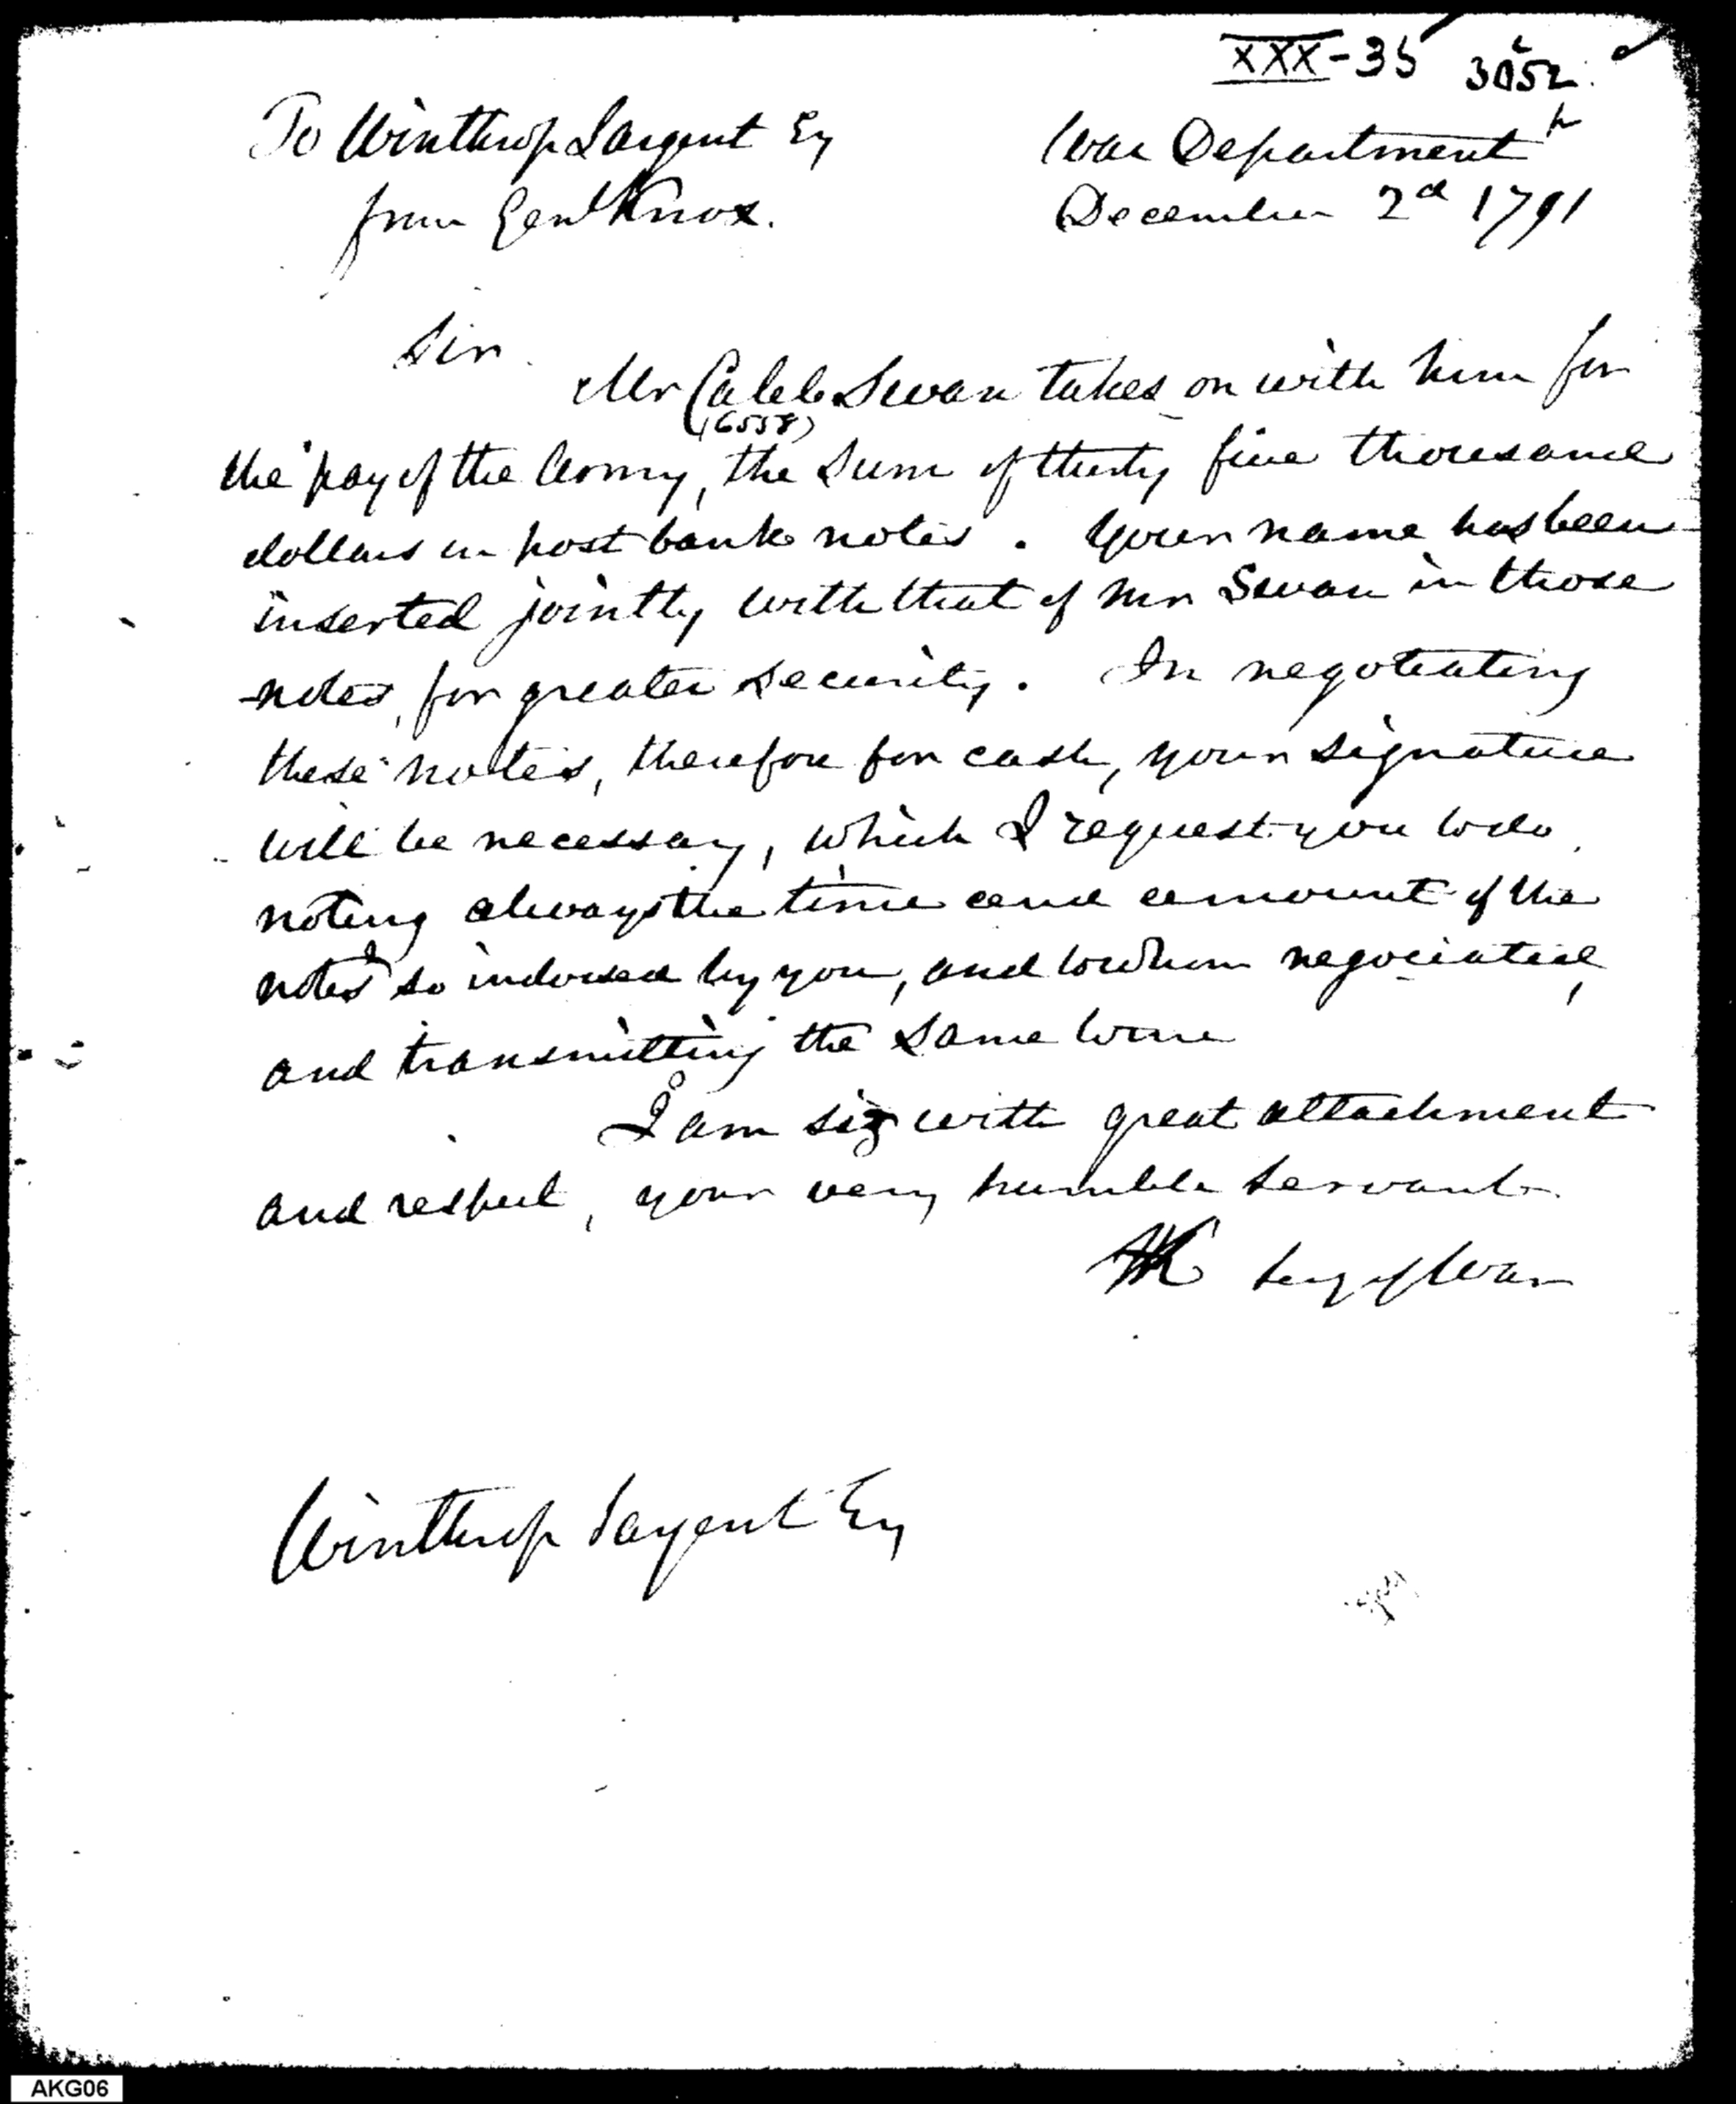 XXX-35 3052
To Winthrop Sargent Esq
War Department
from Genl Knox.
December 2d 1791
Sir.
Mr Caleb Swan takes on with him for
(6558)
the pay of the Army, the sum of thirty five thousand
dollars in post bank notes. Your name has been
inserted jointly with that of Mr Swan in those
notes, for greater security. In negotiating
these notes, therefore for cash, your signature
will be necessary, which I request you to do,
noting always the time and amount of the
notes so indorsed by you, and to whom negociated,
and transmitting the same to me
I am sir with great attachment
and respect, your very humble servant
HK Secy of War
Winthrop Sargent Esq
AKG06